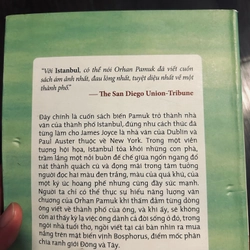 "Với Istanbul, có thể nói Orhan Pamuk đã viết cuốn
sách ám ảnh nhất, đau lòng nhất, tuyệt diệu nhất về một
thành phố."
— The San Diego Union-Tribune
Đây chính là cuốn sách biến Pamuk trở thành nhà
văn của thành phố Istanbul, đúng như cách thức đã
từng làm cho James Joyce là nhà văn của Dublin và
Paul Auster thuộc về New York. Trong một viện
tượng hội họa, Istanbul tỏa khói những con phà,
trăm lăng một nỗi buồn để che giùa ngổn ngang đổ
nát thành quách cũ và đọng mãi trong tâm tưởng
người đọc hai màu đen trắng, màu của quá khứ, của
mọi ký ức hoang phế nhưng cũng đầy sức mạnh.
Người ta chỉ có thể thực sự hiểu năng lượng văn
chương của Orhan Pamuk khi thấm đẫm từng dòng
ông viết về thành phố của ông, và khi ấy, sẽ không
còn ai thấy kỳ lạ việc ông dành cả đời sống ở đó, trong
ngôi nhà tuổi thơ, ngồi viết tại cái bàn nhìn ra mung
nắng trên mặt biển vịnh Bosphorus, điểm mốc phân
chia ranh giới Đông và Tây.